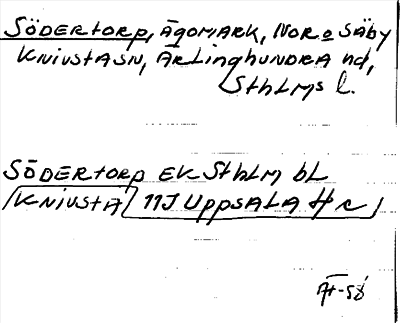 SÖDERTORP, ÄGOMARK, NOR o SÄBY
KNIVSTA SN, ÄRLINGHUNDRA hd,
SthLMs L.
SÖDERTORP EK SthLM bL
KNIVSTA 11J UppSALA H c
ÄT-58